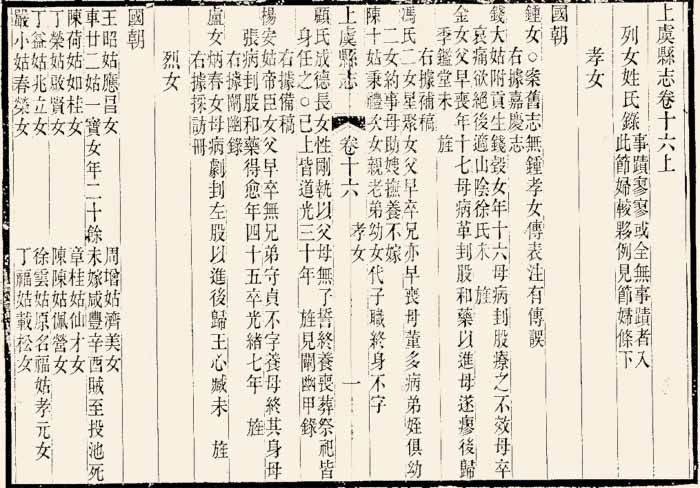 上虞縣志卷十六上
列女姓氏錄事蹟寥寥或全無事蹟者入
此節婦較夥例見節婦條下
孝女
國朝
鍾女○案舊志無鍾孝女傳表注有傳誤
右據嘉慶志
錢大姑附貢生錢瑴女年十六母病刲股療之不效母卒
哀痛欲絕後適山陰徐氏未 旌
金女父早喪年十七母病革刲股和藥以進母遂瘳後歸
季鑑堂未 旌
右據補稿
馮氏二女星聚女父早卒兄亦早喪母董多病弟姪俱幼
二女約事母助嫂撫養不嫁
陳十姑秉禮次女親老弟幼女代子職終身不字
上虞縣志 卷十六 孝女 一
顧氏成德長女性剛執以父母無子誓終養喪葬祭祀皆
身任之○已上皆道光三十年 旌見闡幽甲錄
右據備稿
楊安姑帝臣女父早卒無兄弟守貞不字養母終其身母
張病刲股和藥得愈年四十五卒光緒七年 旌
右據闡幽錄
盧女炳春女母病劇刲左股以進後歸王心臧未 旌
右據採訪冊
烈女
國朝
王昭姑應呂女 周增姑濟美女
車廿二姑一寶女年二十餘未嫁咸豐辛酉賊至投池死
陳荷姑如桂女 章桂姑仙才女
丁榮姑啟賢女 陳陳姑佩營女
丁益姑兆立女 徐雲姑原名福姑孝元女
嚴小姑春榮女 丁福姑載松女